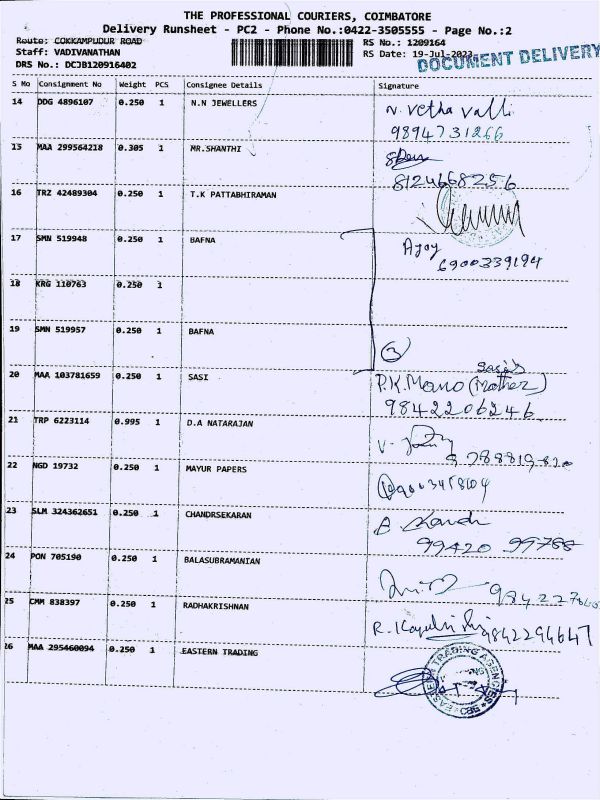 THE PROFESSIONAL COURIERS, COIMBATORE
Delivery Runsheet - PC2 - Phone No.:0422-3505555 - Page No.:2
Route: COKKAMPUDUR ROAD RS No.: 1209164
Staff: VADIVANATHAN RS Date: 19-Jul-2023
DRS No.: DCJB120916402 DOCUMENT DELIVERY
S No Consignment No Weight PCS Consignee Details Signature
14 DDG 4896107 0.250 1 N.N JEWELLERS N. Vetha Valli
9894731266
15 MAA 299564218 0.305 1 MR.SHANTHI
8124668256
16 TRZ 42489304 0.250 1 T.K PATTABHIRAMAN
17 SMN 519948 0.250 1 BAFNA Ajay
6900339194
18 KRG 110763 0.250 1
19 SMN 519957 0.250 1 BAFNA 3
20 MAA 103781659 0.250 1 SASI P.K. Mano (Mother)
9842206246
21 TRP 6223114 0.995 1 D.A NATARAJAN
22 NGD 19732 0.250 1 MAYUR PAPERS
23 SLM 324362651 0.250 1 CHANDRSEKARAN
99420 99788
24 PON 705190 0.250 1 BALASUBRAMANIAN
25 CMM 838397 0.250 1 RADHAKRISHNAN R. 9842294647
26 MAA 295460094 0.250 1 EASTERN TRADING
EASTERN TRADING AGENCIES CBE